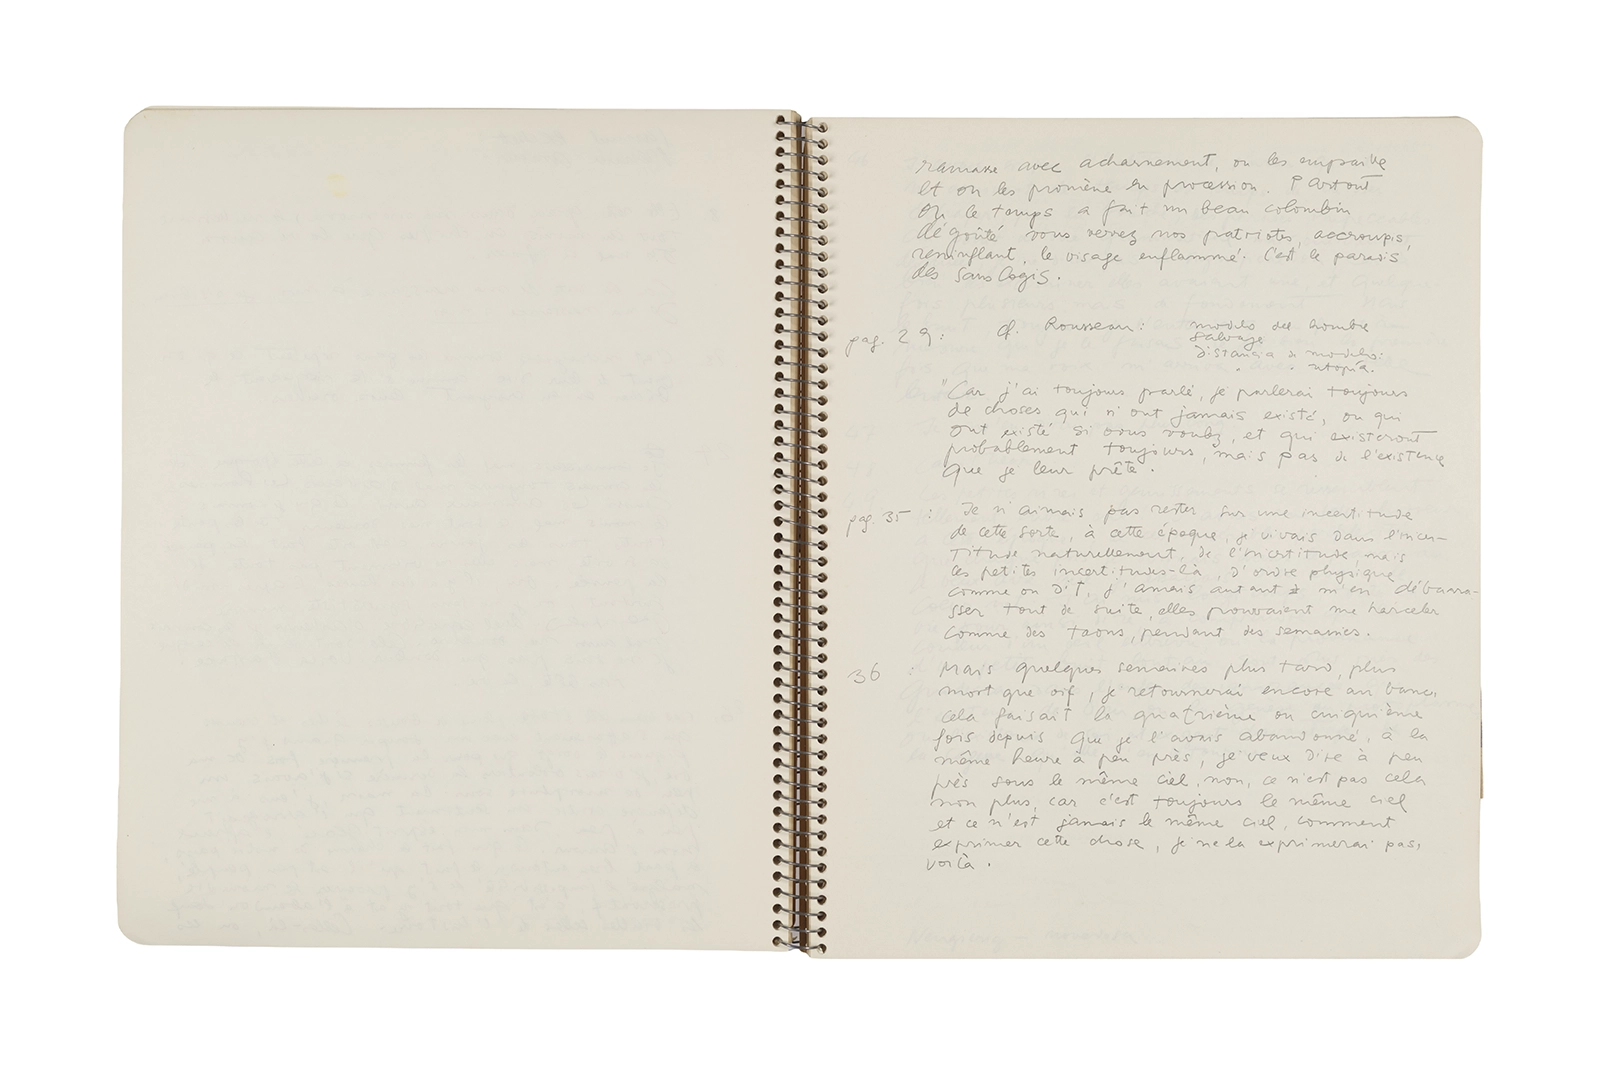 ramasse avec acharnement, on les empaille
et on les promène en procession. Partout
où le temps a fait un beau colombin
dégoûté vous verrez nos patriotes, accroupis,
reniflant, le visage enflammé. C'est le paradis
des sans logis.
pag. 29: cf. Rousseau: modelo del hombre
salvaje
distancia modelo:
utopía.
"Car j'ai toujours parlé, je parlerai toujours
de choses qui n'ont jamais existé, ou qui
ont existé si vous voulez, et qui existeront
probablement toujours, mais pas de l'existence
que je leur prête.
pag. 35: Je n'aimais pas rester sur une incertitude
de cette sorte, à cette époque, je vivais dans l'incer-
titude naturellement, de l'incertitude, mais
ces petites incertitudes-là, d'ordre physique
comme on dit, j'amais autant m'en débarra-
sser tout de suite, elles pouvaient me harceler
comme des taons, pendant des semaines.
36: Mais quelques semaines plus tard, plus
mort que vif, je retournerai encore au banc,
cela faisait la quatrième ou cinquième
fois depuis que je l'avais abandonné, à la
même heure à peu près, je veux dire à peu
près sous le même ciel, non, ce n'est pas cela
non plus, car c'est toujours le même ciel
et ce n'est jamais le même ciel, comment
exprimer cette chose, je ne la exprimerai pas,
voilà.